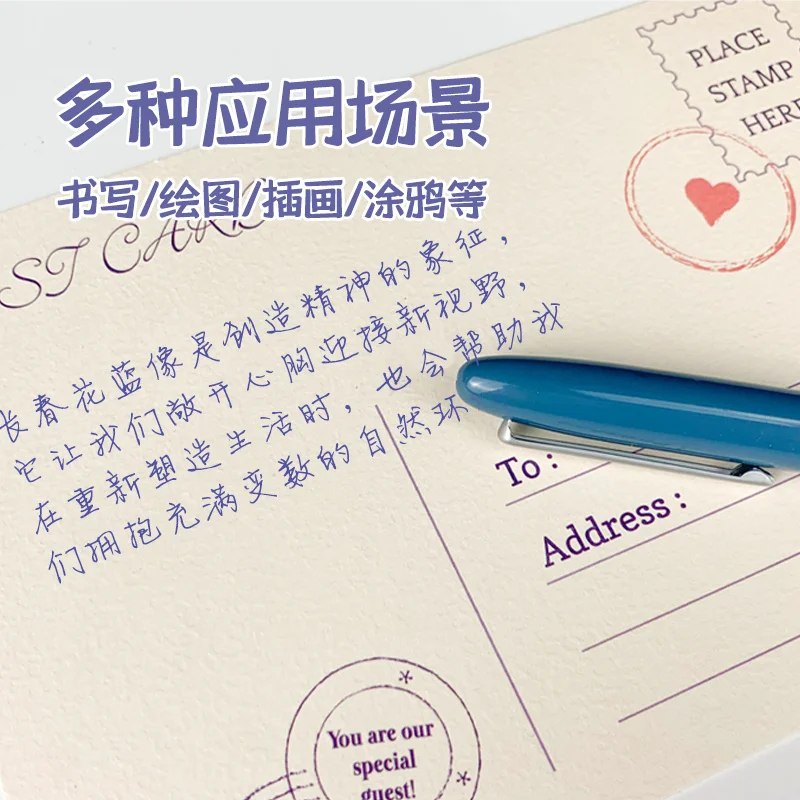 多种应用场景
书写/绘图/插画/涂鸦等
PLACE
STAMP
HERE
ST CARD
长春花蓝像是创造精神的象征，
它让我们敞开心胸迎接新视野，
在重新塑造生活时，也会帮助我
们拥抱充满变数的自然环
To:
Address:
You are our
special
guest!